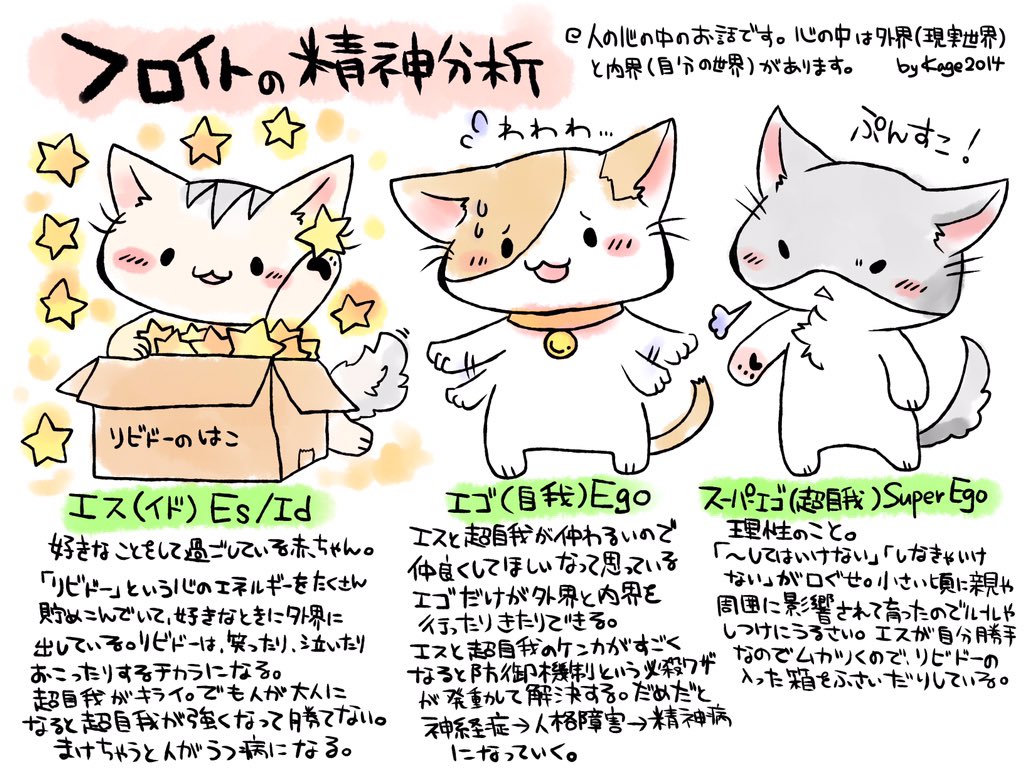 フロイトの精神分析
人の心の中のお話です。心の中は外界(現実世界)
と内界(自分の世界)があります。 by Kage2014
わわわ…
ぷんすこ!
リビドーのはこ
エス(イド)Es/Id
好きなことをして過ごしている赤ちゃん。
「リビドー」という心のエネルギーをたくさん
貯めこんでいて、好きなときに外界に
出している。リビドーは、笑ったり、泣いたり
おこったりするチカラになる。
超自我がキライ。でも人が大人に
なると超自我が強くなって勝てない。
まけちゃうと人がうつ病になる。
エゴ(自我)Ego
エスと超自我が仲わるいので
仲良くしてほしいなって思っている
エゴだけが外界と内界を
行ったりきたりできる。
エスと超自我のケンカがすごく
なると防御機制という必殺ワザ
が発動して解決する。だめだと
神経症→人格障害→精神病
になっていく。
スーパーエゴ(超自我)Super Ego
理性のこと。
「〜してはいけない」「しなきゃいけ
ない」が口ぐせ。小さい頃に親や
周囲に影響されて育ったのでルールや
しつけにうるさい。エスが自分勝手
なのでムカツくので、リビドーの
入った箱をふさいだりしている。